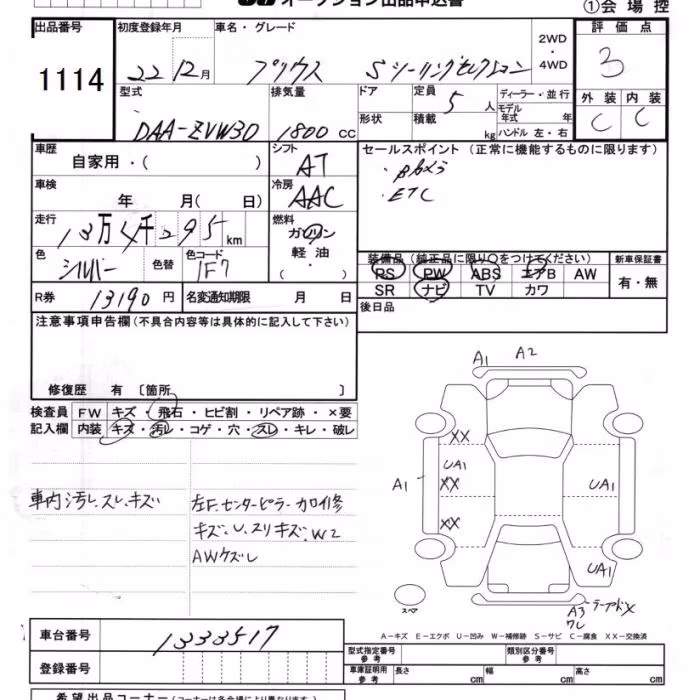 オークション出品申込書
①会場控
出品番号
1114
初度登録年月
22 12月
車名・グレード
プリウス Sツーリングセレクション
2WD・4WD
評価点
3
外装 内装
C C
型式
DAA-ZVW30
排気量
1800cc
ドア
形状
定員
5人
積載
kg
ディーラー・並行
モデル年式 年
ハンドル 左・右
車歴
自家用・( )
シフト
AT
セールスポイント(正常に機能するものに限ります)
・ETC
車検
年 月( 日)
冷房
AAC
走行
13万4千295km
燃料
ガソリン
軽油
・( )
色
シルバー
色替
色コード
1F7
装備品(純正品に限り○をつけてください)
PS PW ABS エアB AW
SR ナビ TV カワ
新車保証書
有・無
R券
13190円
名変通知期限 月 日
後日品
注意事項申告欄(不具合内容等は具体的に記入して下さい)
修復歴 有〔箇所 〕
検査員記入欄
FW キズ・飛石・ヒビ割・リペア跡・×要
内装 キズ・汚レ・コゲ・穴・スレ・キレ・破レ
車内汚レ、スレ、キズ
左F、センターピラー カロイ修
キズ、U、スリキズ、W2
AWケズレ
A1 A2
XX
UA1
XX
A1
UA1
XX
UA1
スペア
リアガラX
A3
ワレ
A-キズ E-エクボ U-凹み W-補修跡 S-サビ C-腐食 XX-交換済
車台番号
1333517
登録番号
型式指定番号 参考
類別区分番号 参考
車庫証明用 参考
長さ cm 幅 cm 高さ cm
希望出品コーナー(コーナーは各会場により異なります)